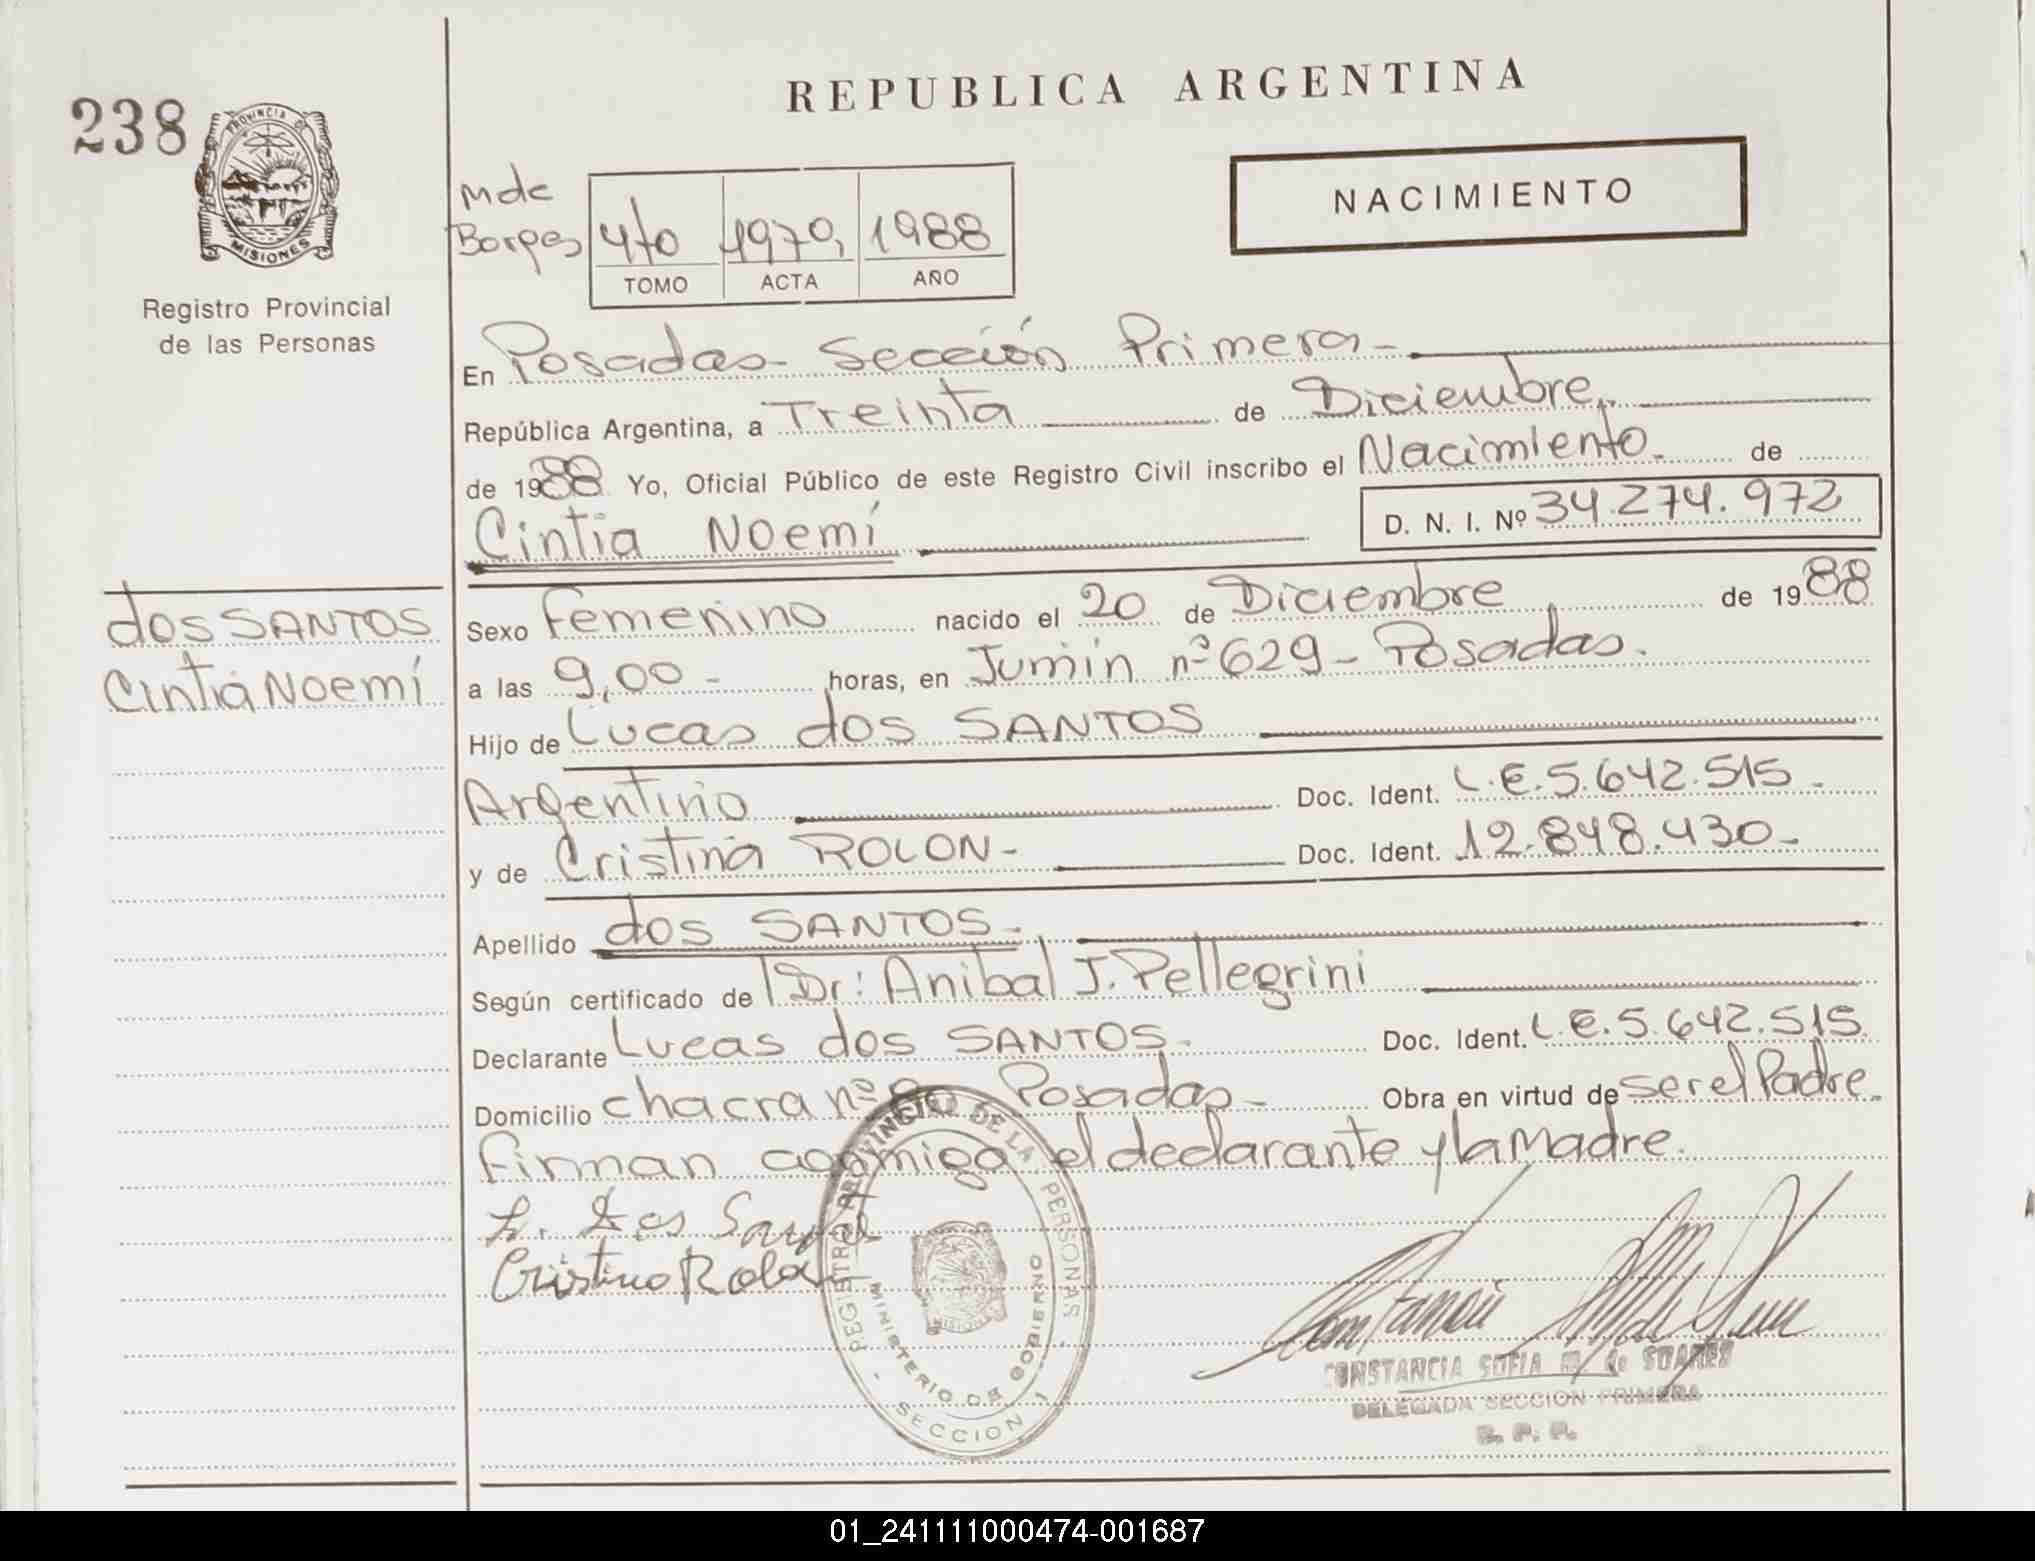 REPUBLICA ARGENTINA
238
PROVINCIA DE
MISIONES
Registro Provincial
de las Personas
Mde
Borges
4to 1970, 1988
TOMO ACTA AÑO
NACIMIENTO
En Posadas - Sección Primera -
República Argentina, a Treinta de Diciembre
de 1988 Yo, Oficial Público de este Registro Civil inscribo el Nacimiento de
Cintia Noemí
D. N. I. Nº 34.274.972
dos SANTOS
Cintia Noemí
Sexo Femenino nacido el 20 de Diciembre de 1988
a las 9,00 - horas, en Junín nº 629 - Posadas.
Hijo de Lucas dos SANTOS
Argentino Doc. Ident. L.E. 5.642.515 -
y de Cristina ROLON - Doc. Ident. 12.848.430 -
Apellido dos SANTOS -
Según certificado de Dr: Anibal J. Pellegrini
Declarante Lucas dos SANTOS - Doc. Ident. L.E. 5.642.515
Domicilio chacra nº Posadas - Obra en virtud de ser el Padre.
Firman conmigo el declarante y la Madre.
L. Dos Santo
Cristina Rolon
REGISTRO PROVINCIAL DE LAS PERSONAS
MINISTERIO DE GOBIERNO
- SECCION 1 -
MISIONES
CONSTANCIA SOFIA M. de SUARES
DELEGADA SECCION PRIMERA
R. P. P.
01_241111000474-001687